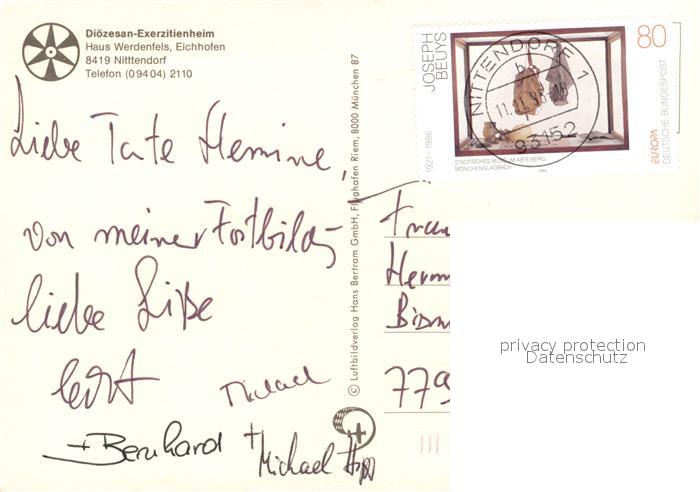 Diözesan-Exerzitienheim
Haus Werdenfels, Eichhofen
8419 Nitttendorf
Telefon (0 94 04) 2110
Liebe Tante Hermine,
von meiner Fortbildg
liebe Grüße
Michael
+ Bernhard
+ Michael
© Luftbildverlag Hans Bertram GmbH, Flughafen Riem, 8000 München 87
JOSEPH
BEUYS
1921-1986
80
STÄDTISCHES MUSEUM ABTEIBERG
MÖNCHENGLADBACH
1993
EUROPA
DEUTSCHE BUNDESPOST
NITTENDORF 1
b
93152
Frau
Herm
Bism
779
privacy protection
Datenschutz